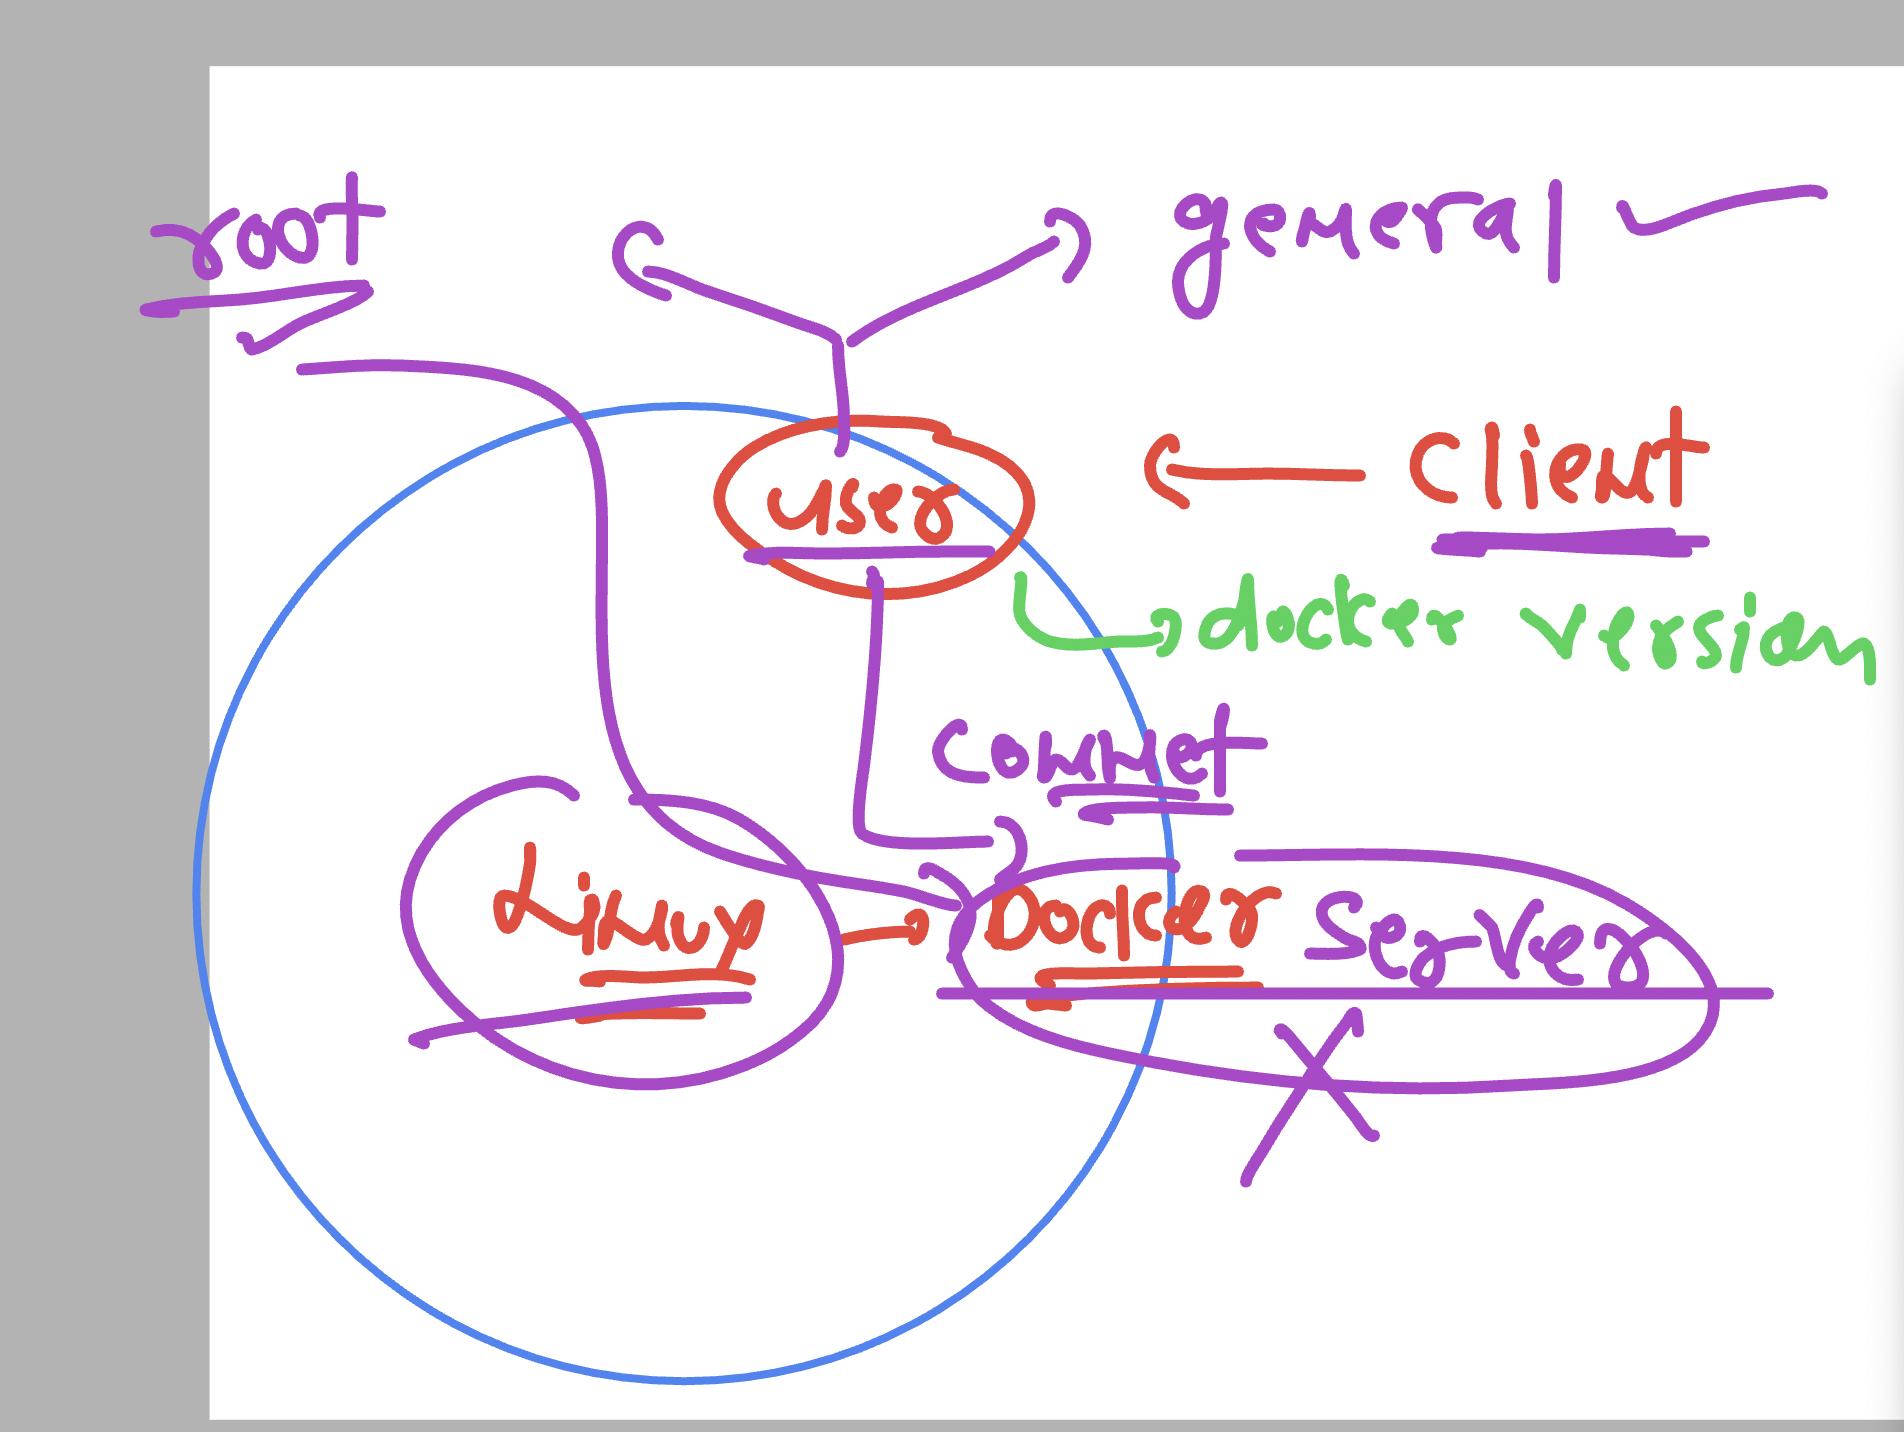 root
general
user
client
docker version
connet
Linux
Docker Server